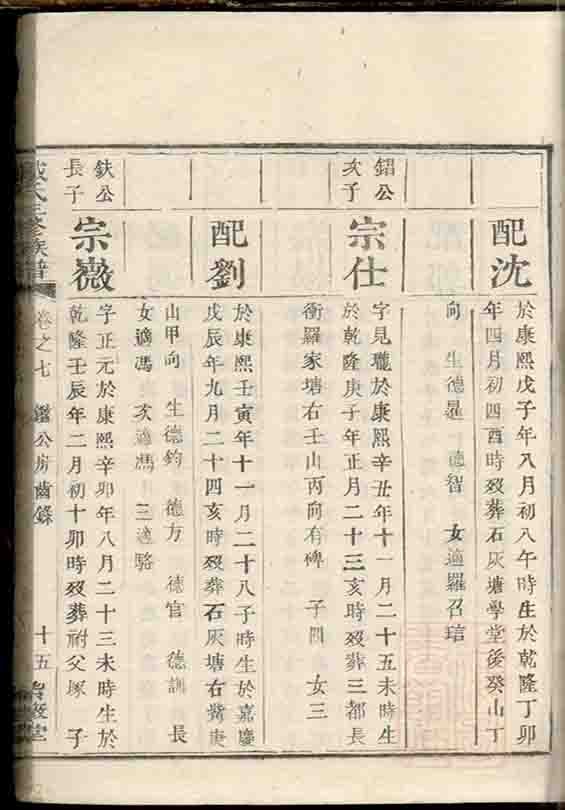 配沈
於康熙戊子年八月初八午時生於乾隆丁卯
年四月初四酉時歿葬石灰塘學堂後癸山丁
向 生德暹 德智 女適羅召琂
錩公
次子
宗仕
字見瓏於康熙辛丑年十一月二十五未時生
於乾隆庚子年正月二十三亥時歿葬三都長
衝羅家塘右壬山丙向有碑 子四 女三
配劉
於康熙壬寅年十一月二十八子時生於嘉慶
戊辰年九月二十四亥時歿葬石灰塘右觜庚
山甲向 生德鈞 德方 德官 德訓 長
女適馮 次適馮 三適駱
鈇公
長子
宗嶶
字正元於康熙辛卯年八月二十三未時生於
乾隆壬辰年二月初十卯時歿葬祔父塚 子
氏三修族譜
卷之七 公房齒錄 十五